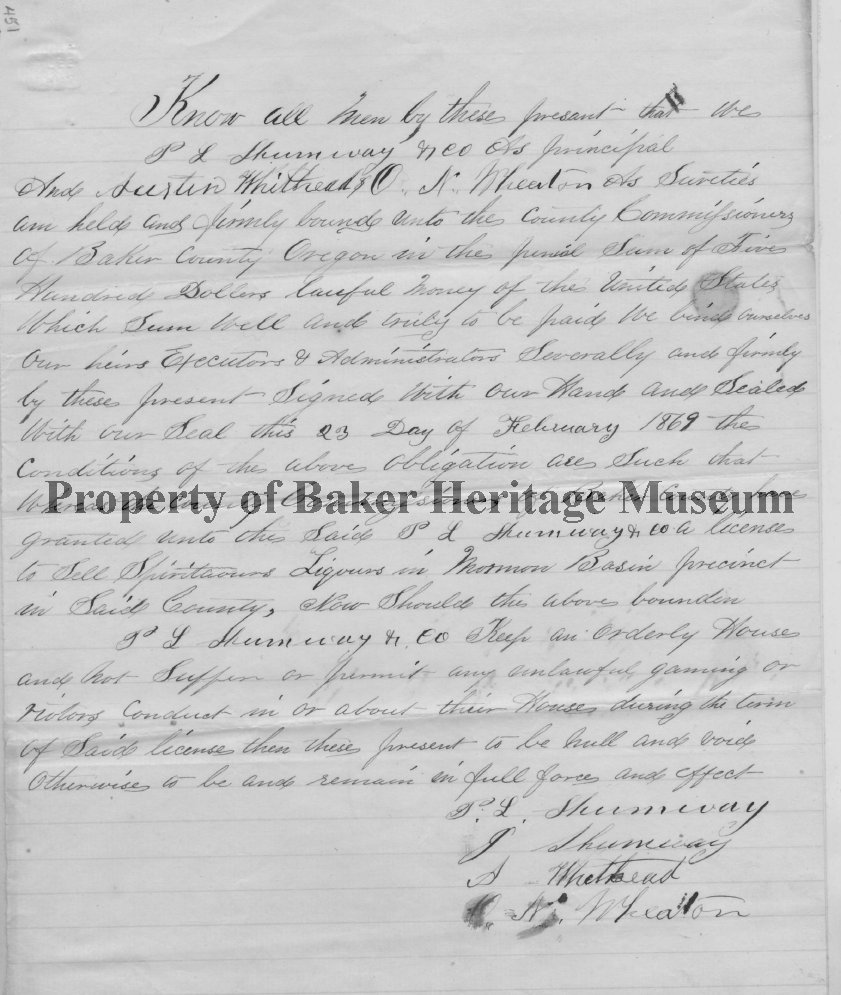 451
Know all Men by these present that we
P L Shumway & co As principal
And Austin Whithead & O. N. Wheaton As Sureties
am held and firmly bound unto the County Commissioners
of Baker County Oregon in the penal Sum of Five
Hundred Dollers lawful Money of the United States
Which Sum Well and truly to be paid We bind ourselves
Our heirs Executors & Administrators Severally and firmly
by these present Signed With our Hand and Sealed
With our Seal this 23 Day of February 1869 the
Conditions of the above Obligation are Such that
Property of Baker Heritage Museum
granted unto the Said P L Shumway & co a license
to Sell Spirituours Liqours in Mormon Basin precinct
in Said County, Now Should the above bounden
P L Shumway & co Keep an orderly House
and not Suffer or permit any unlawful gaming or
riotors Conduct in or about their House during the term
of Said license then these present to be Null and void
Otherwise to be and remain in full force and effect
P. L. Shumway
J Shumway
A Whithead
O. N. Wheaton